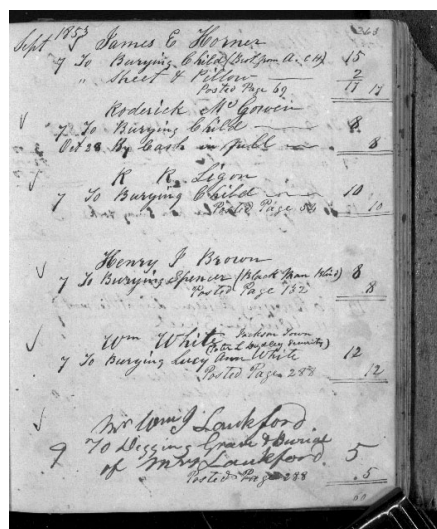 Sept 1853
263
James E. Horner
7 To Burying Child (Brot from A. C. H) 15
" Sheet & Pillow 2
Posted Page 69 17 17
Roderick McGowen
7 To Burying Child 8
Oct 28 By Cash in full 8
R R. Ligon
7 To Burying Child 10
Posted Page 10
Henry J Brown
7 To Burying Spencer (Black Man Hired) 8
Posted Page 132 8
Wm White Jackson Town
(Peter L Dudley Security)
7 To Burying Lucy Ann White 12
Posted Page 288 12
Mr Wm J Lankford
9 To Digging Grave & Burial
of Mrs Lankford 5
Posted Page 288 .5
60